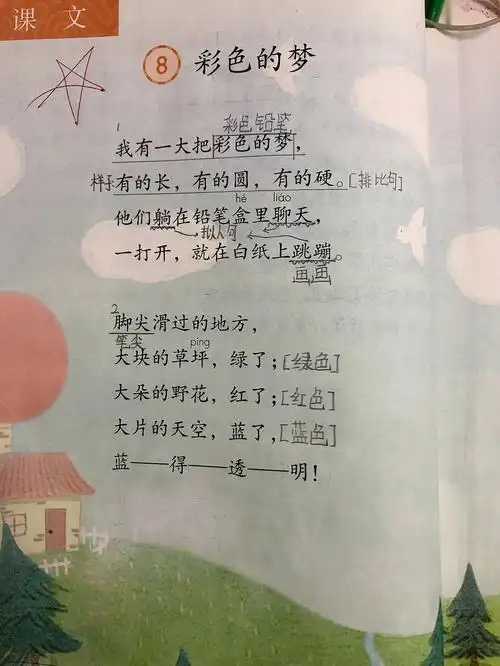 课文
8 彩色的梦
1 彩色铅笔
我有一大把彩色的梦，
样子 有的长，有的圆，有的硬。[排比句]
hé liáo
他们躺在铅笔盒里聊天，
拟人句
一打开，就在白纸上跳蹦。
画画
2
脚尖滑过的地方，
笔尖 píng
大块的草坪，绿了；[绿色]
大朵的野花，红了；[红色]
大片的天空，蓝了，[蓝色]
蓝——得——透——明！